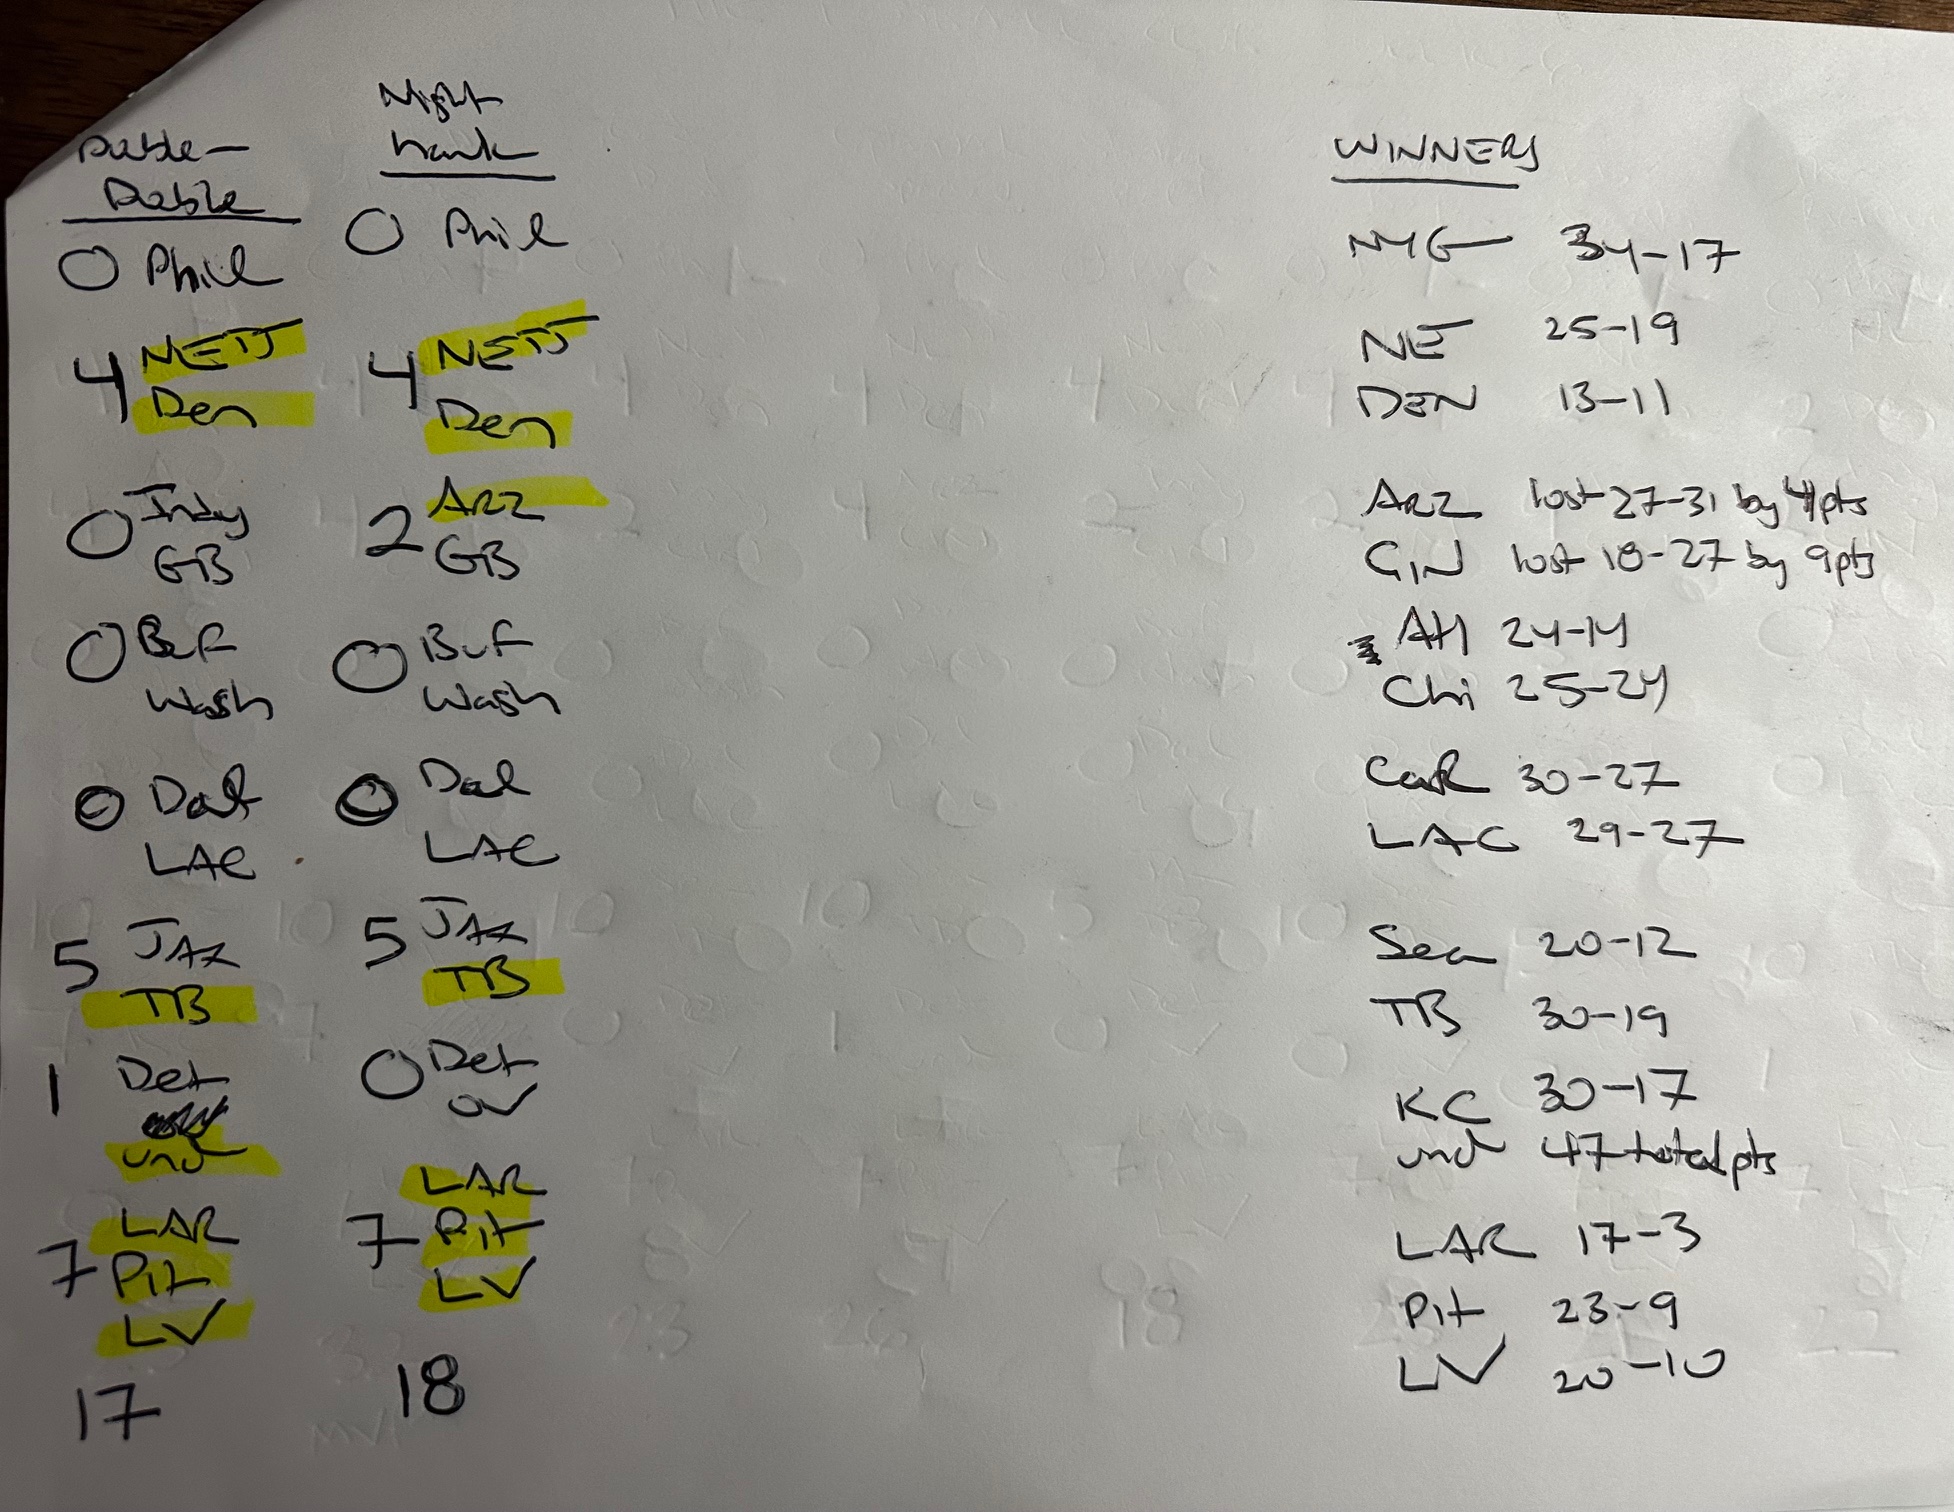 Dable-
Dable
0 Phil
4 NETJ
Den
0 Indy
GB
0 Buf
Wash
0 Dal
LAC
5 JAX
TB
1 Det
und
LAR
7 Pit
LV
17
Night
hawk
0 Phil
4 NETJ
Den
2 ARZ
GB
0 Buf
Wash
0 Dal
LAC
5 JAX
TB
0 Det
ov
LAR
7 Pit
LV
18
WINNERS
NYG 34-17
NE 25-19
DEN 13-11
ARZ lost 27-31 by 4pts
CIN lost 18-27 by 9pts
Atl 24-14
Chi 25-24
CaR 30-27
LAC 29-27
Sea 20-12
TB 30-19
KC 30-17
und 47 total pts
LAR 17-3
Pit 23-9
LV 20-10